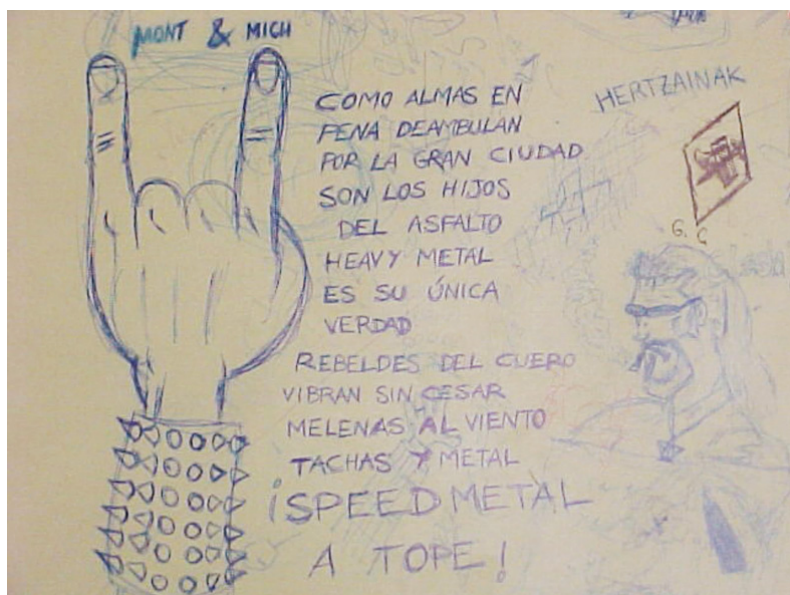 MONT & MICH
COMO ALMAS EN
PENA DEAMBULAN
POR LA GRAN CIUDAD
SON LOS HIJOS
DEL ASFALTO
HEAVY METAL
ES SU ÚNICA
VERDAD
REBELDES DEL CUERO
VIBRAN SIN CESAR
MELENAS AL VIENTO
TACHAS Y METAL
¡SPEED METAL
A TOPE!
HERTZAINAK
G. C